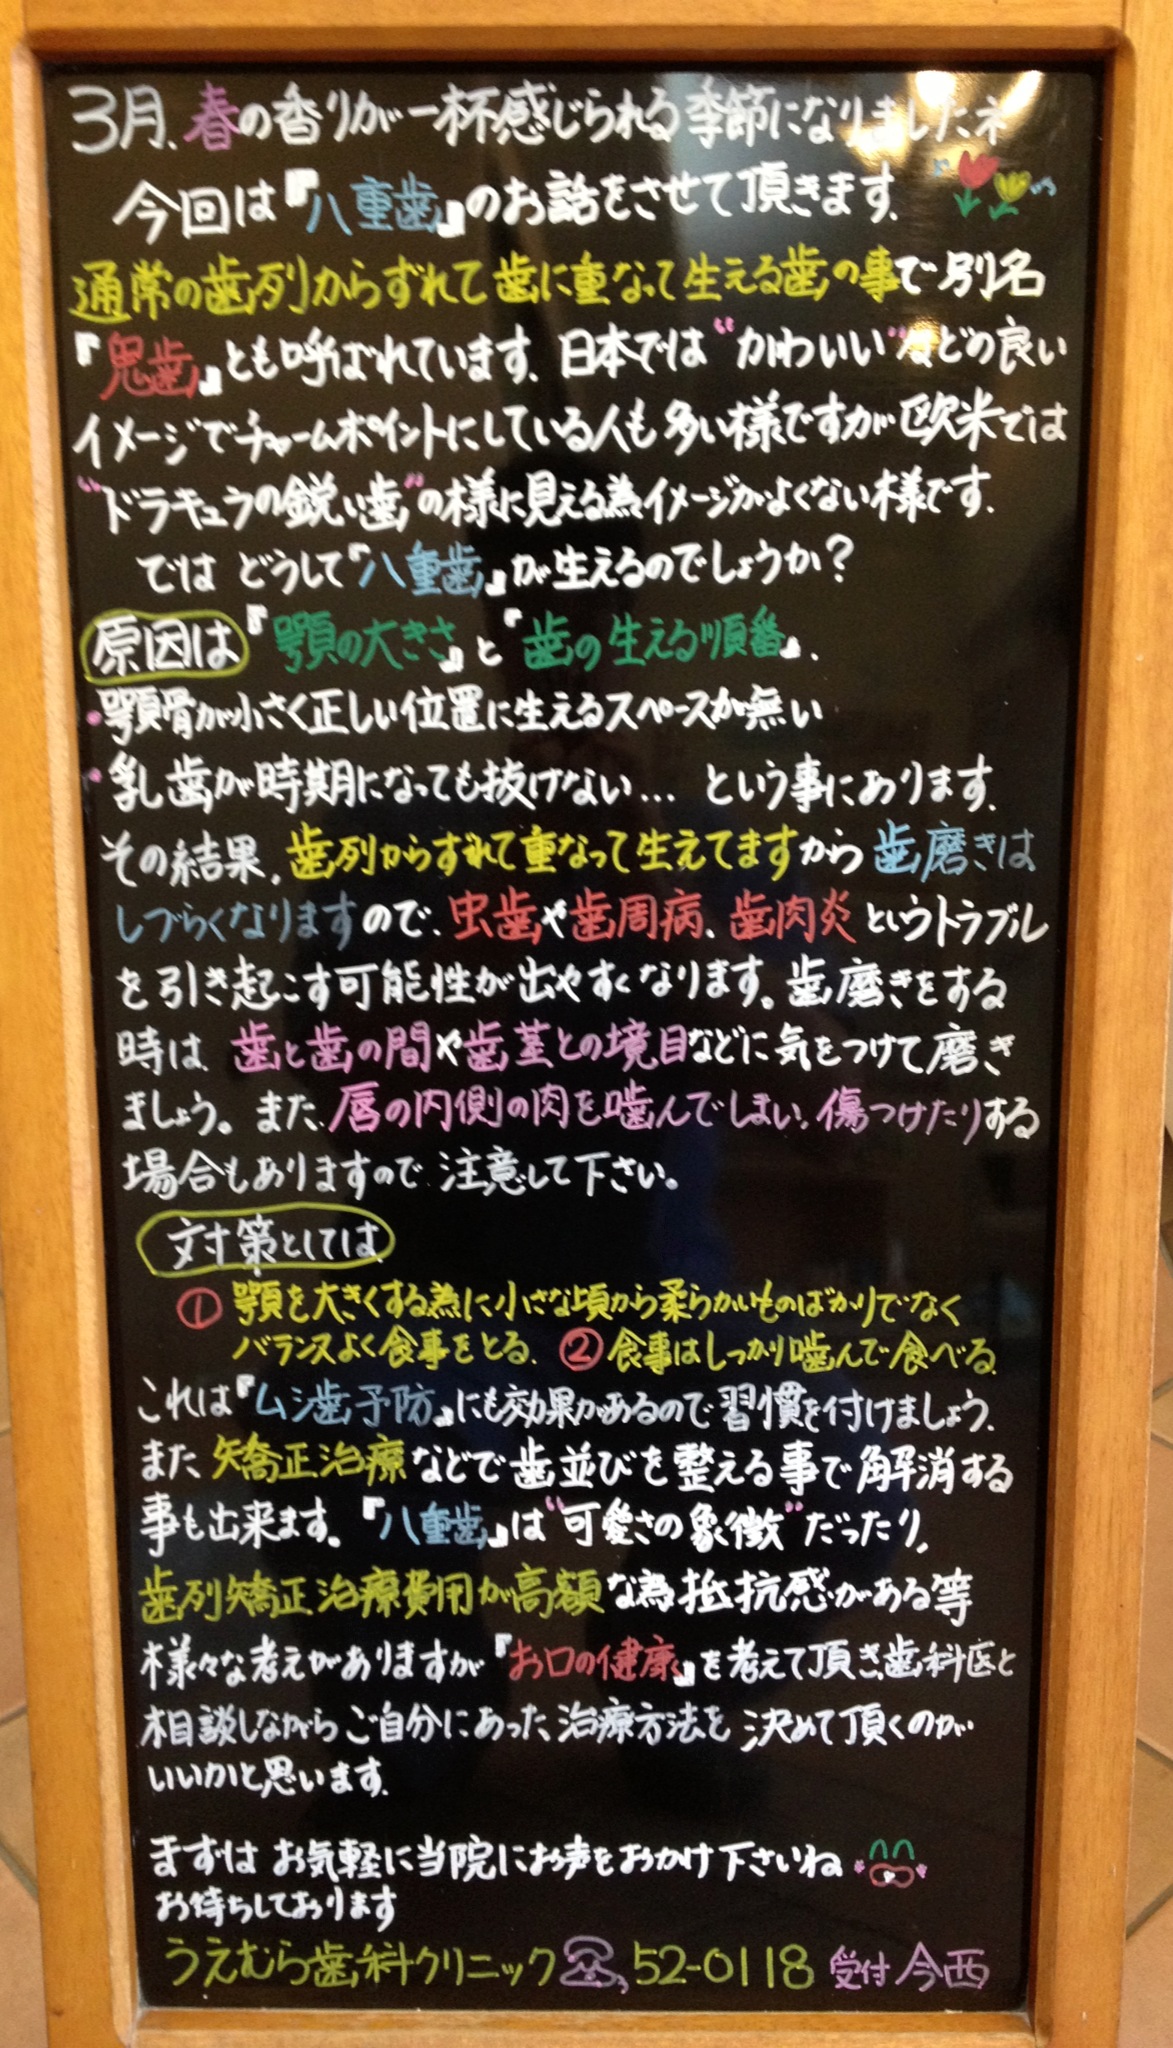 3月、春の香りが一杯感じられる季節になりましたネ
今回は『八重歯』のお話をさせて頂きます。
通常の歯列からずれて歯に重なって生える歯の事で別名
『鬼歯』とも呼ばれています。日本では“かわいい”などの良い
イメージでチャームポイントにしている人も多い様ですが欧米では
“ドラキュラの鋭い歯”の様に見える為イメージがよくない様です。
では どうして『八重歯』が生えるのでしょうか?
原因は『顎の大きさ』と『歯の生える順番』、
・顎骨が小さく正しい位置に生えるスペースが無い
・乳歯が時期になっても抜けない… という事にあります。
その結果、歯列からずれて重なって生えてますから歯磨きは
しづらくなりますので、虫歯や歯周病、歯肉炎というトラブル
を引き起こす可能性が出やすくなります。歯磨きをする
時は、歯と歯の間や歯茎との境目などに気をつけて磨き
ましょう。また、唇の内側の肉を噛んでしまい、傷つけたりする
場合もありますので、注意して下さい。
対策としては
① 顎を大きくする為に小さな頃から柔らかいものばかりでなく
バランスよく食事をとる。 ② 食事はしっかり噛んで食べる。
これは『ムシ歯予防』にも効果があるので習慣を付けましょう。
また、矯正治療などで歯並びを整える事で解消する
事も出来ます。『八重歯』は“可愛さの象徴”だったり、
歯列矯正治療費用が高額な為抵抗感がある等
様々な考えがありますが『お口の健康』を考えて頂き、歯科医と
相談しながらご自分にあった治療方法を決めて頂くのが
いいかと思います。
まずは お気軽に当院にお声をおかけ下さいね
お待ちしております
うえむら歯科クリニック☎52-0118 受付 今西